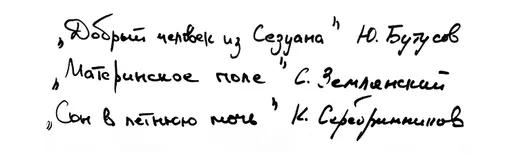 „Добрый человек из Сезуана" Ю. Бутусов
„Материнское поле" С. Землянский
„Сон в летнюю ночь" К. Серебренников